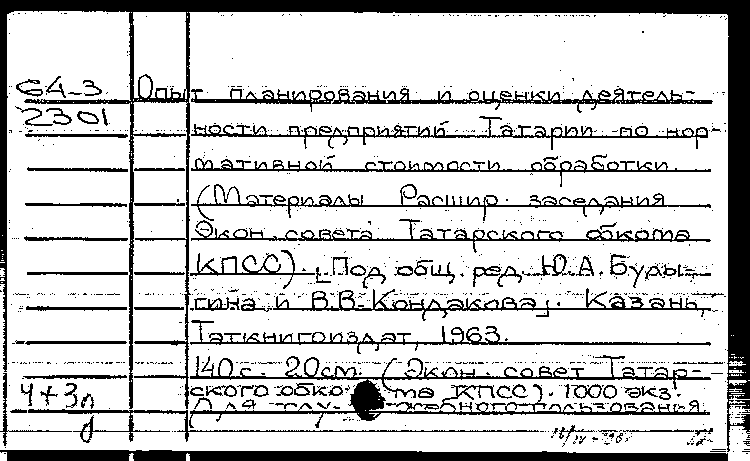 64-3
2301
Опыт планирования и оценки деятель-
ности предприятий Татарии по нор-
мативной стоимости обработки.
(Материалы Расшир. заседания
Экон. совета Татарского обкома
КПСС). [Под общ. ред. Ю.А. Буры-
гина и В.В. Кондакова]. Казань,
Таткнигоиздат, 1963.
140 с. 20см. (Экон. совет Татар-
ского обкома КПСС). 1000 экз.
Для служебного пользования
4+3п